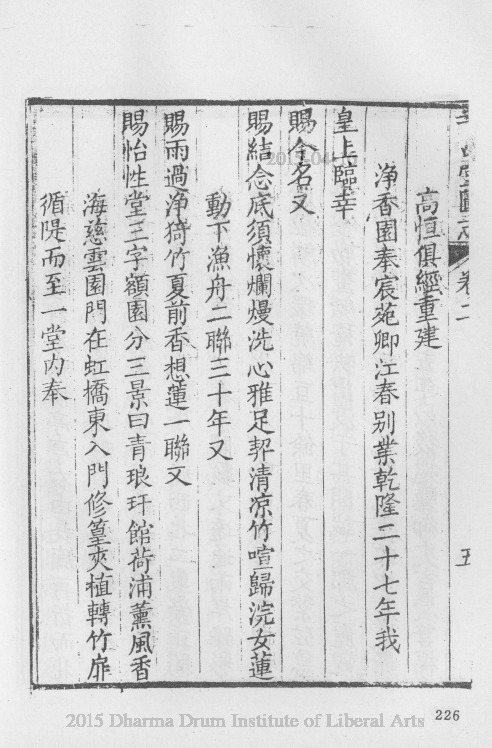 平山堂圖志 卷二 五
高恒俱經重建
淨香園奉宸苑卿江春別業乾隆二十七年我
皇上臨幸
賜今名又
賜結念底須懷爛熳洗心雅足契清凉竹喧歸浣女蓮
動下漁舟二聯三十年又
賜雨過淨猗竹夏前香想蓮一聯又
賜怡性堂三字額園分三景曰青琅玕館荷浦薰風香
海慈雲園門在虹橋東入門修篁夾植轉竹扉
循隄而至一堂內奉
2015 Dharma Drum Institute of Liberal Arts
226